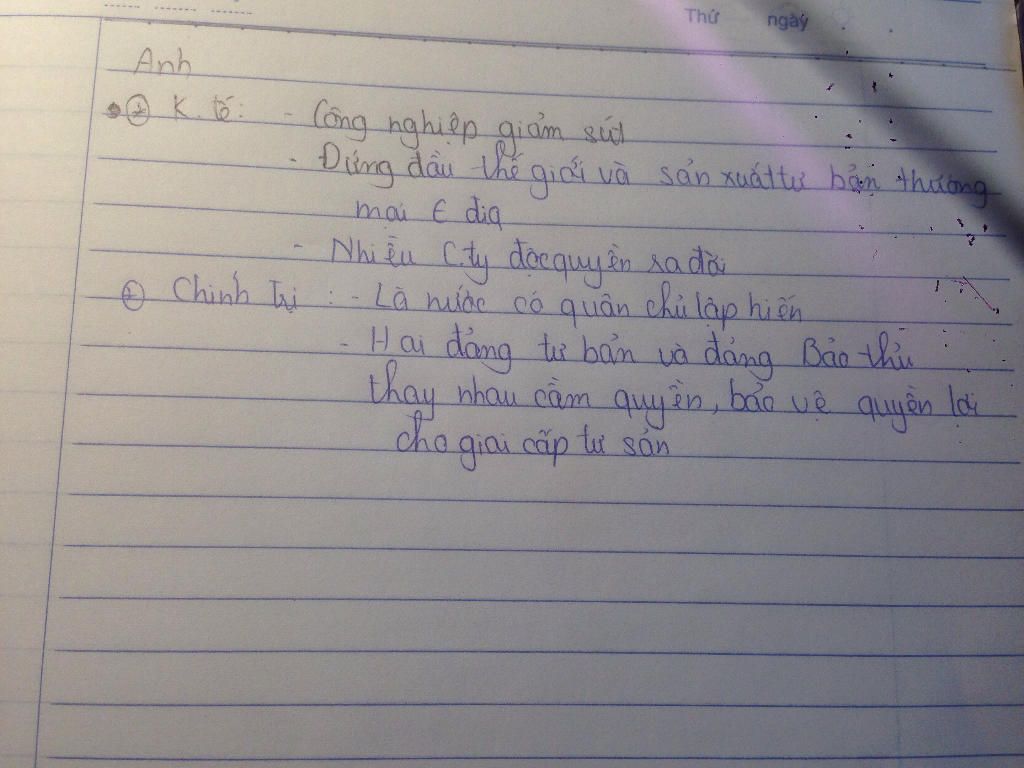 Thứ ngày
Anh
K. tế: - Công nghiệp giảm sút
- Đứng đầu thế giới và sản xuất tư bản thương
mại € địa
- Nhiều Cty độc quyền ra đời
Chính trị : - Là nước có quân chủ lập hiến
- Hai đảng tư bản và đảng Bảo thủ
thay nhau cầm quyền, bảo vệ quyền lợi
cho giai cấp tư sản